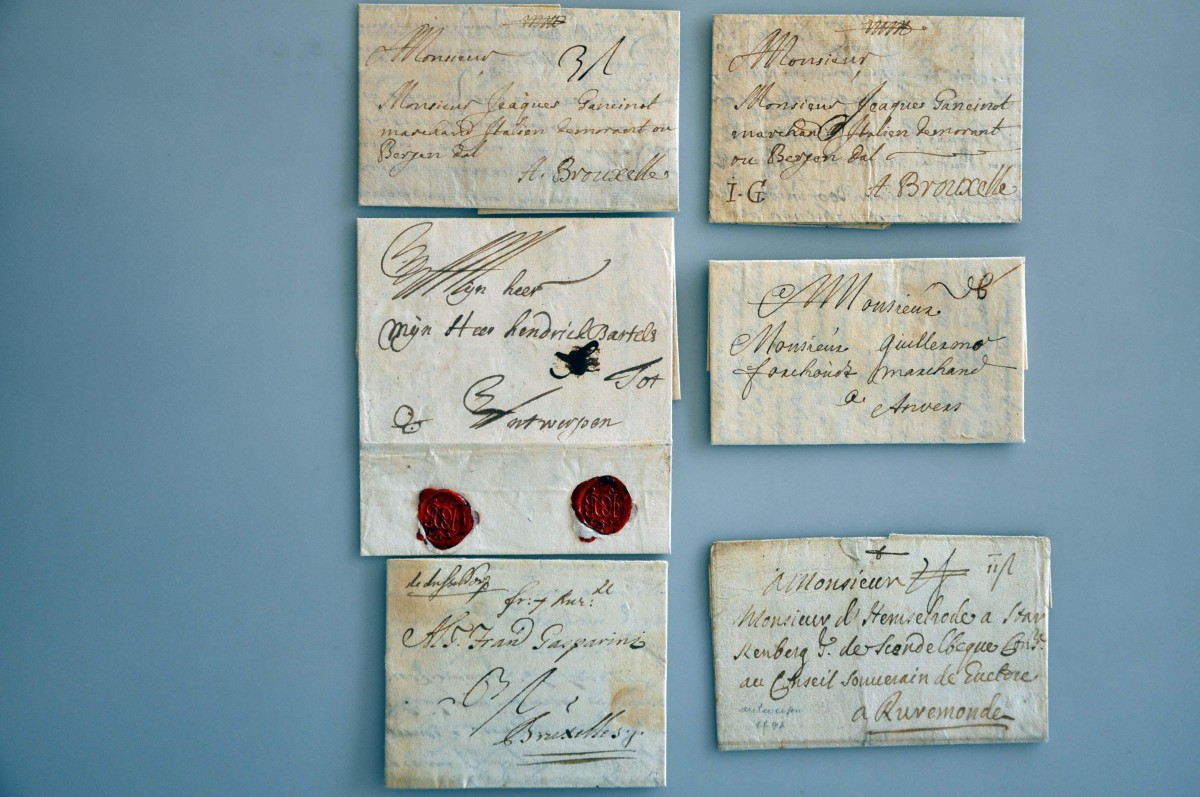 Monsieur 3
Monsieur Jeaques Gancinot
marchand Italien demorant ou
Bergen dal
A. Brouxelle
Monsieur
Monsieur Jeaques Gancinot
marchand Italien demorant
ou Bergen dal
I-G A Brouxelle
Mijn heer
Mijn Heer hendrick Bartels
Tot
Antwerpen
Monsieur
Monsieur Guillermo
forchoudt marchand
a
Anvers
de dusseldorp
Gasparini
3
a
Bruxelles
A Monsieur
Monsieur d'Hemselrode a Star
kenberg de Scendelbeque
au Conseil Souverain de
a Ruremonde